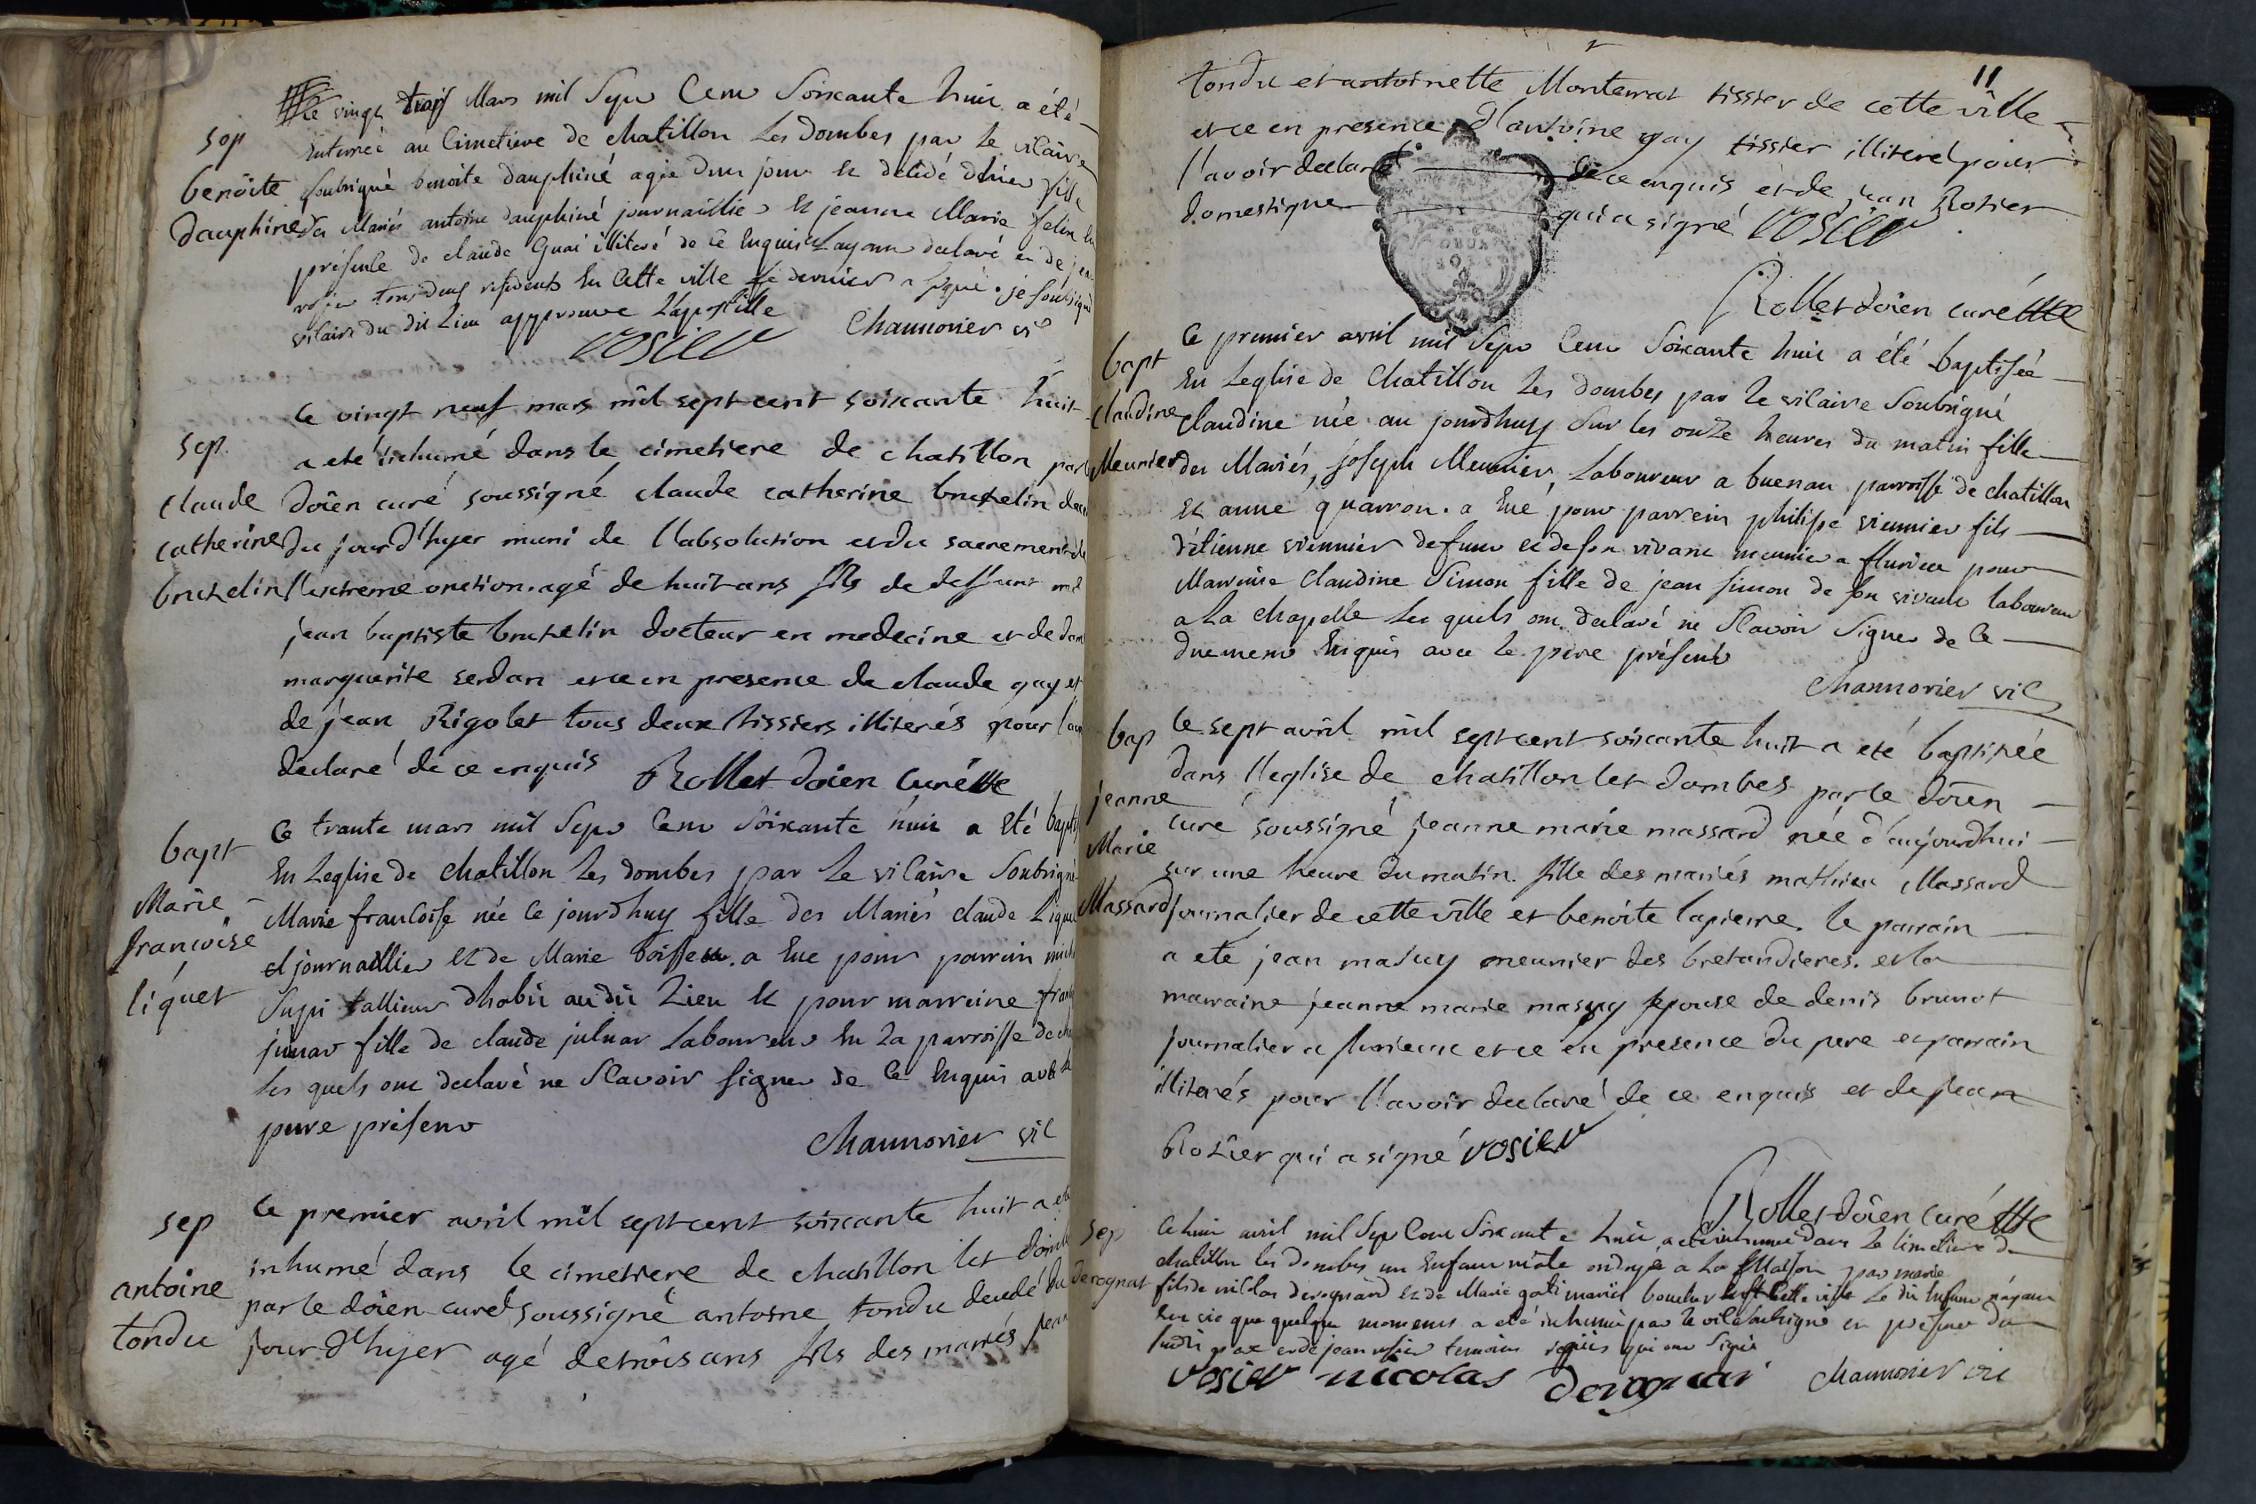 sep
benoite
dauphiné
Le vingt trois Mars mil Sept Cent Soixante huit a été
Enterrée au Cimetiere de chatillon Les dombes par Le vicaire
soubsigné benoite dauphiné agée dun jour et decedé fille
des Mariés antoine dauphiné journaillier et jeanne Marie felin
présence de claude Guai illiteré de Ce Enquis Layant declaré et de
rosier tous deux residents En Cette ville Le dernier a signé. je soubsigné
vicaire du dit Lieu approuve Lapostille
rosier Channorier vic
sep.
claude
catherine
bruchelin
Le vingt neuf mars mil sept cent soixante huit
a eté inhumé dans le cimetiere de chatillon par le
doien curé soussigné claude catherine bruchelin
du jour d'hyer muni de l'absolution et du sacrement de
l'extreme onction. agé de huit ans fils de deffunt
jean baptiste bruchelin docteur en medecine et de
marguerite serdan et ce en presence de claude gay et
de jean Rigolet tous deux tissiers illiterés pour l'av
declaré de ce enquis Rollet doien curé
bapt
Marie
francoise
liquet
Ce trante mars mil Sept Cent Soixante huit a Eté
En Leglise de chatillon Les dombes par Le vicaire Soubsigné
Marie francoise née Ce jourdhuy fille des Mariés claude Lique
et journaillier et de Marie boisson. a Eue pour parrain
Supi tallieur dhabit audit Lieu et pour marraine
juvar fille de claude juluar Laboureur En La parroisse de
Les quels ont declaré ne Scavoir signer de Ce Enquis avec
pere présent
Channorier vic
sep
antoine
tondu
Le premier avril mil sept cent soixante huit a eté
inhumé dans le cimetiere de chatillon les
par le doien curé soussigné antoine tondu decedé du
jour d'hyer agé de trois ans fils des mariés jean
11
tondu et antoinette Monterrat tissier de cette ville
et ce en presence d'antoine gay tissier illiteré pour
l'avoir declaré de ce enquis et de jean Rosier
domestique qui a signé rosier
Rollet doien curé
bapt
claudine
Meunier
Ce premier avril mil Sept Cent Soixante huit a été baptisée
En Leglise de Chatillon Les Dombes par Le vicaire Soubsigné
claudine née au jourdhuy Sur les onze heures du matin fille
des Mariés, joseph Meunier, Laboureur a buenan parroisse de chatillon
et anne quarron. a Eué pour parrein philipe viennier fils
détienne viennier defunt et de son vivant meunier a flurieu pour
Marreine Claudine Simon fille de jean simon de son vivant laboureur
a La Chapelle Les quels ont declaré ne Scavoir Signer de Ce
duement Enquis avec Le pere présent
Channorier vic
bap
jeanne
Marie
Massard
Le sept avril mil sept cent soixante huit a eté baptisée
dans l'eglise de chatillon les dombes par le doien
curé soussigné jeanne marie massard née d'aujourdhui
sur une heure du matin. fille des mariés mathieu Massard
journalier de cette ville et benoite lapierre. le parrain
a eté jean masuy meunier des bretandieres. et la
marraine jeanne marie masuy epouse de denis brunot
journalier a flurieux et ce en presence du pere et parrain
illiterés pour l'avoir declaré de ce enquis et de jean
Rosier qui a signé rosier
Rollet doien curé
sep
derognat
Ce huit avril mil Sept Cent Soixante huit a eté inhumé dans Le Cimetiere de
chatillon Les dombes un Enfant mâle ondoyé a La Maison par marie
fils de nicolas derognard et de Marie gati mariés boucher de Cette ville Le dit Enfant nayant
Eu vie que quelque moments a eté inhumé par Le vic Soubsigné en présence du
sudit pere et de jean rosier temoins requis qui ont Signé
rosier nicolas derognat Channorier vic